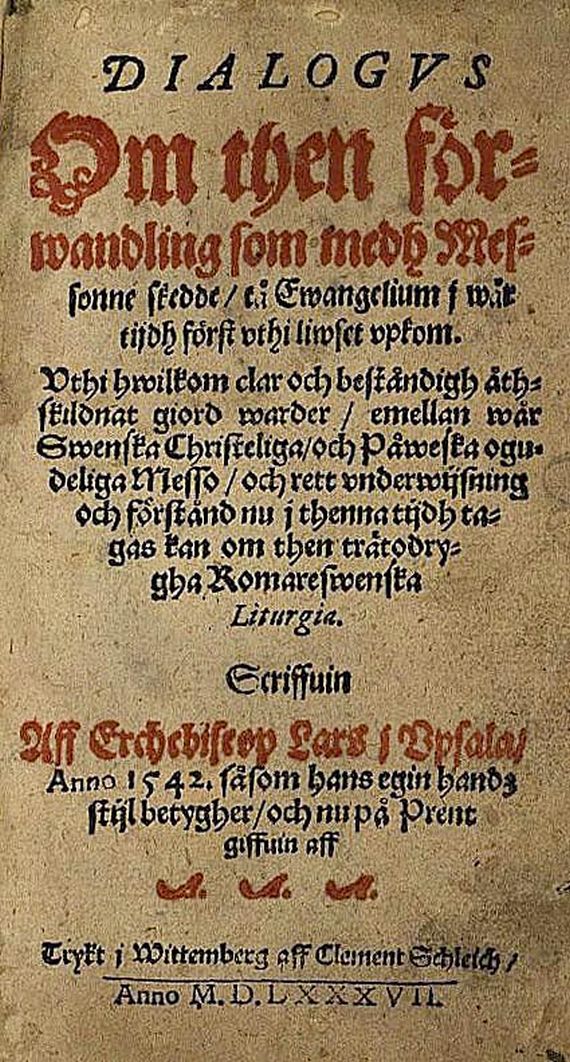 DIALOGVS
Om then för-
wandling som medh Mes-
sonne skedde / tå Ewangelium j wår
tijdh först vthi liwset vpkom.
Vthi hwilkom clar och beståndigh åth-
skildnat giord warder / emellan wår
Swenska Christeliga/och Påweska ogu-
deliga Messo / och rett vnderwijsning
och förstånd nu j thenna tijdh ta-
gas kan om then trätodry-
gha Romareswenska
Liturgia.
Scriffuin
Aff Erchebiscop Lars j Vpsala/
Anno 1542. såsom hans egin handz
stijl betygher/och nu på Prent
giffuin aff
A. A. A.
Tryckt j Wittemberg aff Clement Schleich /
Anno M. D. LXXXVII.